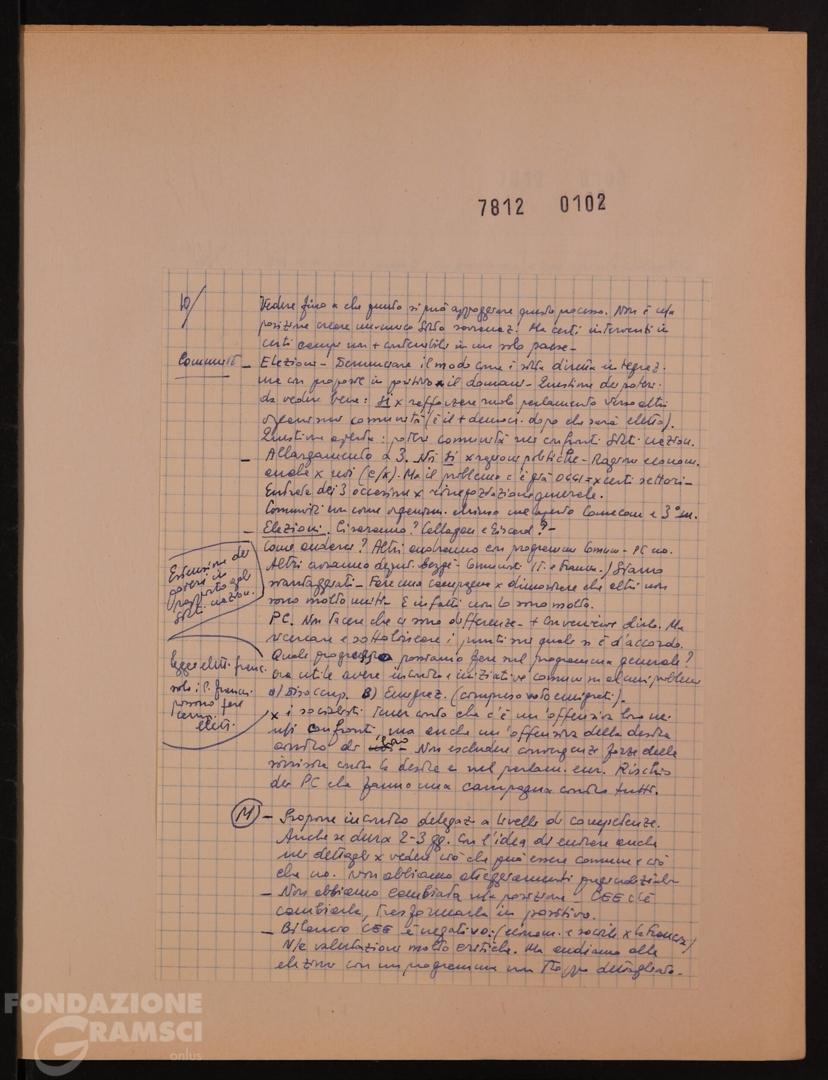 7812 0102
10/
Vedere fino a che punto si può appoggiare questo processo. Non è ns/a
posizione creare un unico Stato sovranaz. Ma certi interventi in
certi campi non + controllabili in un solo paese -
Comunità - Elezioni - Denunciare il modo come è stata diretta integraz.
ma con proposte in positivo x il domani - Questione dei poteri
da vedere bene: sì x rafforzare ruolo parlamento verso altri
organismi comunità (è il + democr. dopo che sarà eletto).
Questione aperta: poteri comunità nei confronti Stati nazion.
- Allargamento a 3. Noi sì x ragioni politiche - Ragioni econom.
anche x noi (c/x). Ma il problema c'è già oggi x certi settori -
Entrata dei 3 occasione x rinegoziazione generale.
Comunità non come organism. chiuso ma aperto Comecon e 3° m.
- Elezioni. Ci saranno? Callaghan e Giscard? -
Come andare? Altri andranno con programma comune - PC no.
Altri avranno deput. Comunisti (It. e Franc.) Siamo
svantaggiati - Fare una campagna x dimostrare che altri non
sono molto uniti - E infatti non lo sono molto.
PC. Non tacere che ci sono differenze - + conveniente dirlo. Ma
ricercare e sottolineare i punti sui quali si è d'accordo.
Quale progresso possiamo fare sul programma generale?
Ora utile avere incontro e iniziative comuni su alcuni problemi
a) Disoccup. B) Emigraz. (compreso voto emigrati) -
x i socialisti tener conto che c'è un'offensiva loro nei
ns/i confronti, ma anche un'offensiva della destra
contro di loro - Non escludere convergenze forze della
sinistra contro la destra e nel parlam. eur. Rischio
dei PC che fanno una campagna contro tutti.
Estensione dei
poteri in
rapporto agli
Stati nazion.
legge elett. franc.
solo i P. francesi
possono fare
campagna
elett.
(M) - Propone incontro delegaz. a livello di competenze.
Anche se dura 2-3 gg. Con l'idea di entrare anche
nei dettagli x vedere ciò che può essere comune e ciò
che no. Non abbiamo atteggiamenti pregiudiziali
- Non abbiamo cambiato ns/a posizione - CEE c'è
cambiarla, trasformarla in positivo.
- Bilancio CEE è negativo: (econom. e sociale x la Francia)
N/e valutazioni molto critiche. Ma andiamo alle
elezioni con un programma non troppo dettagliato -
FONDAZIONE
GRAMSCI
onlus